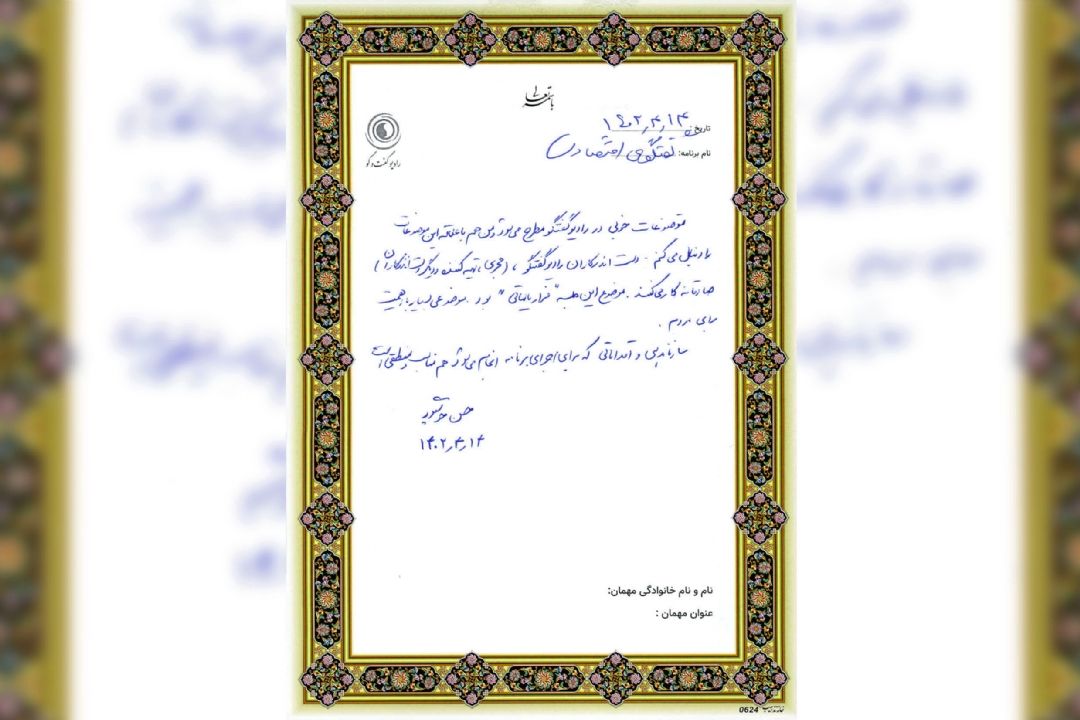 باسمه تعالی
تاریخ: ۱۴۰۲٫۴٫۱۴
نام برنامه: گفتگوی اقتصادی
رادیو گفت و گو
موضوعات خوبی در رادیو گفتگو مطرح می‌شود و من هم با علاقه این موضوعات
را دنبال می‌کنم. دست اندرکاران رادیو گفتگو، (مجری، تهیه کننده و دیگر دست اندرکاران)
صادقانه کار می‌کنند. موضوع این جلسه "فرار مالیاتی" بود. موضوعی بسیار با اهمیت
برای مردم.
سازماندهی و اقداماتی که برای اجرای برنامه انجام می‌شود هم مناسب و منطقی است
۱۴۰۲٫۴٫۱۴
نام و نام خانوادگی مهمان:
عنوان مهمان :
0624